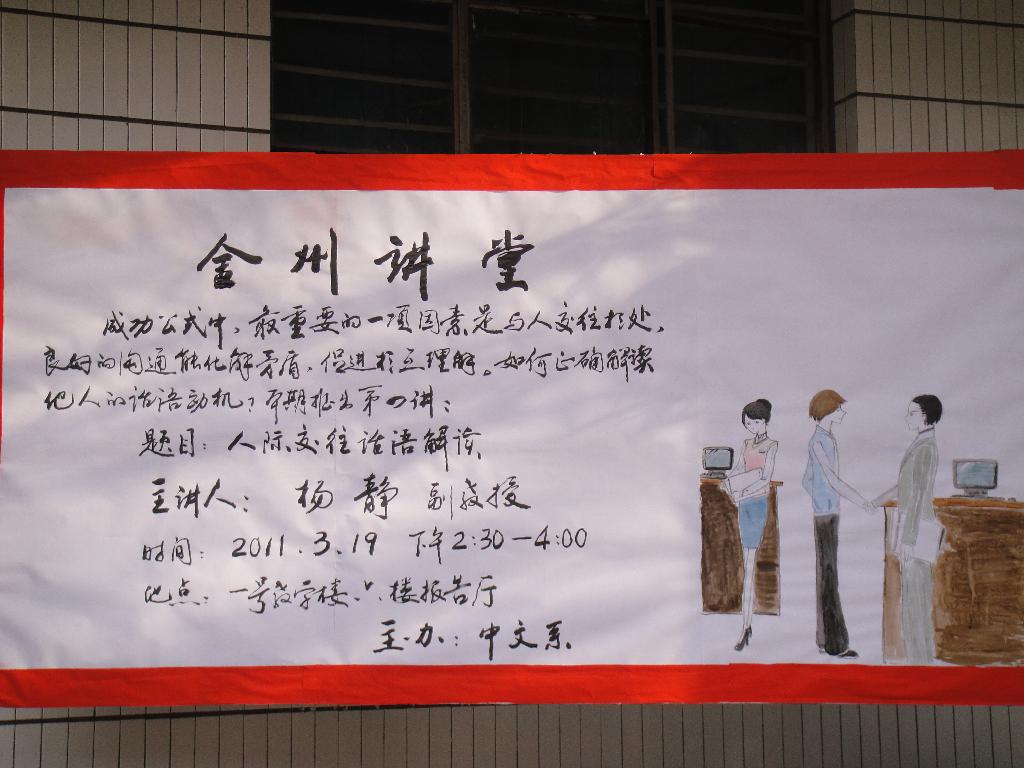 金州讲堂
成功公式中，最重要的一项因素是与人交往相处，
良好的沟通能化解矛盾，促进相互理解。如何正确解读
他人的话语动机？本期推出第四讲：
题目：人际交往话语解读
主讲人：杨静 副教授
时间：2011.3.19 下午2:30-4:00
地点：一号教学楼六楼报告厅
主办：中文系